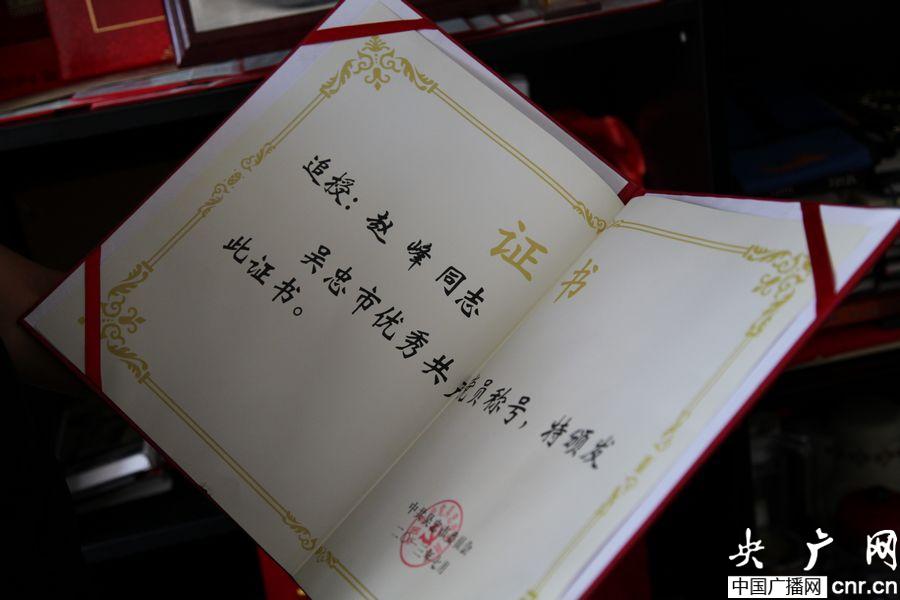 证书
追授：赵峰同志
吴忠市优秀共党员称号，特颁发
此证书。
央广网
中国广播网 cnr.cn